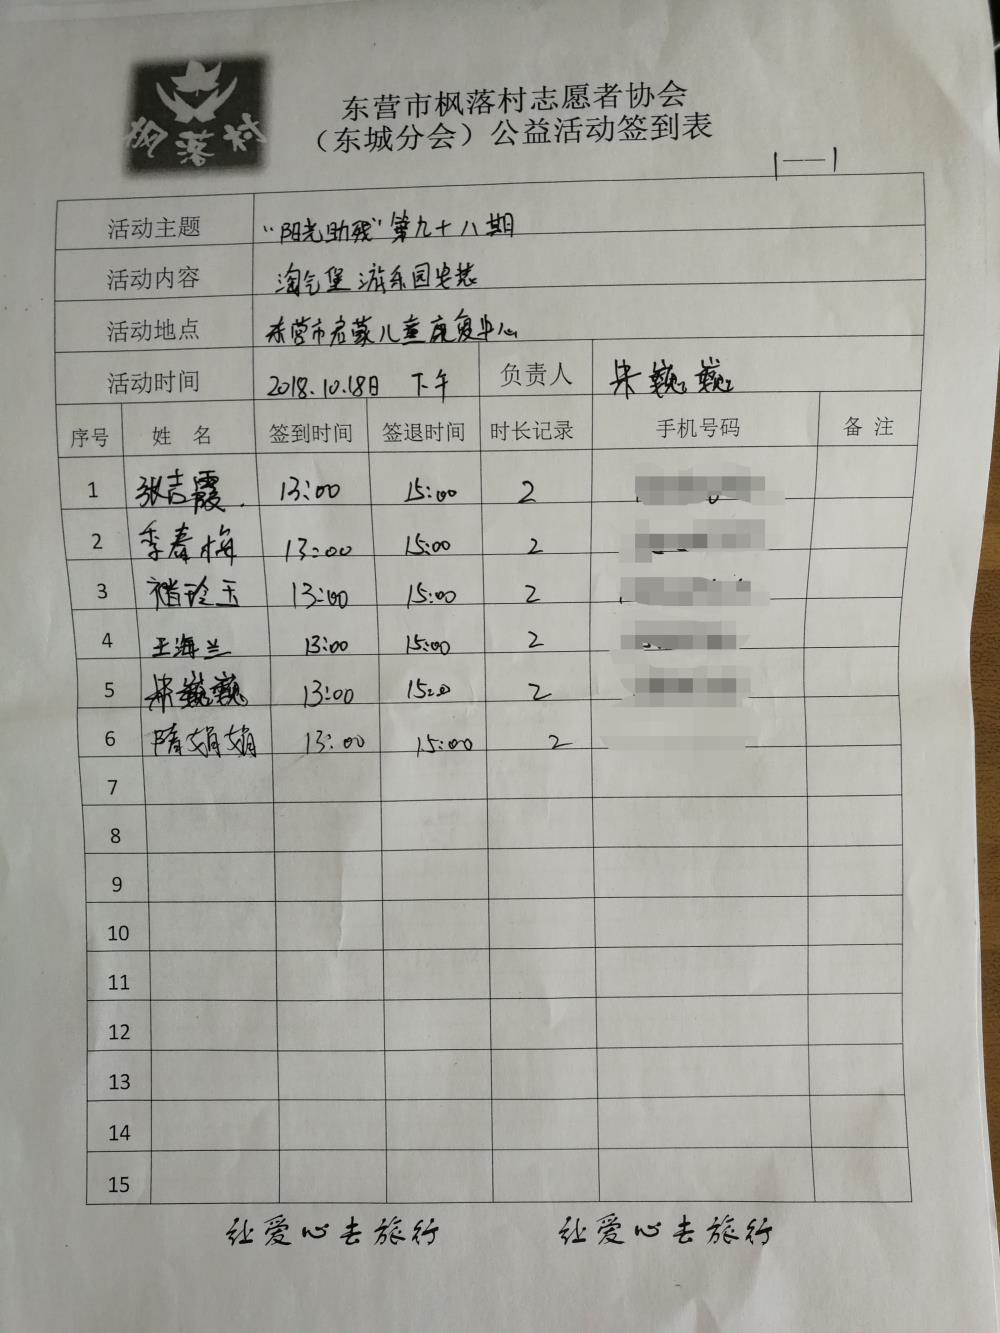 枫落村
东营市枫落村志愿者协会
（东城分会）公益活动签到表
1——1
活动主题 "阳光助残"第九十八期
活动内容 淘气堡游乐园安装
活动地点 东营市启蒙儿童康复中心
活动时间 2018.10.18日 下午 负责人 朱巍巍
序号 姓 名 签到时间 签退时间 时长记录 手机号码 备 注
1 张吉霞 13:00 15:00 2
2 季春梅 13:00 15:00 2
3 褚玲玉 13:00 15:00 2
4 王海兰 13:00 15:00 2
5 朱巍巍 13:00 15:00 2
6 隋娟娟 13:00 15:00 2
7
8
9
10
11
12
13
14
15
让爱心去旅行 让爱心去旅行